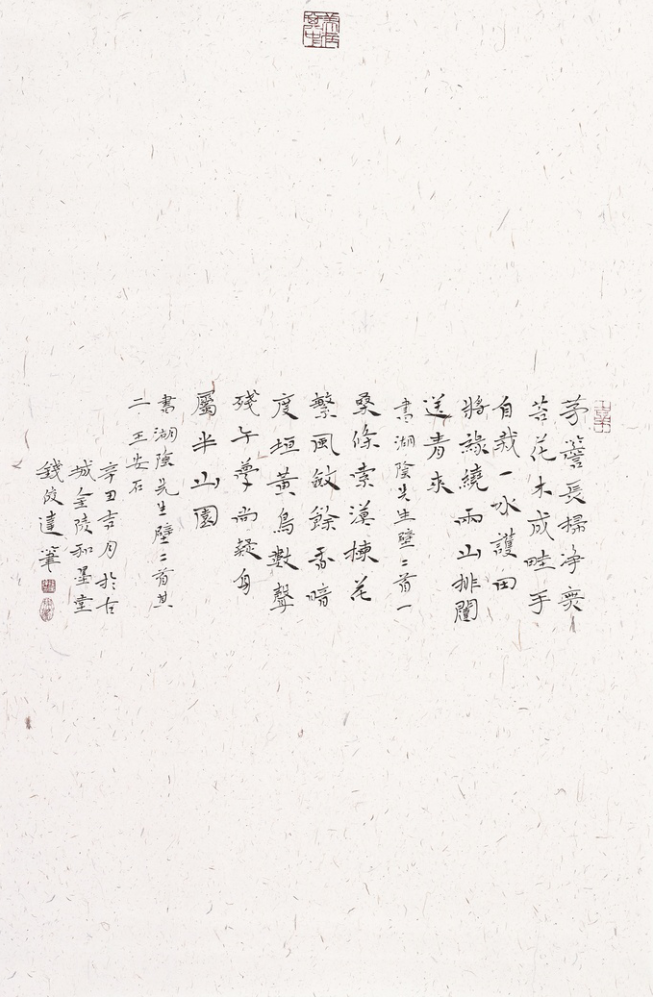 茅簷長掃淨無
苔花木成畦手
自栽一水護田
將綠繞兩山排闥
送青來
書湖陰先生壁二首一
桑條索漠楝花
繁風斂餘香暗
度垣黃鳥數聲
殘午夢尚疑身
屬半山園
書湖陰先生壁二首其
二 王安石
辛丑吉月於古
城金陵和墨堂
錢 達筆